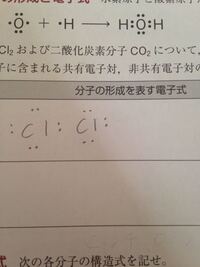 ·Ö· + ·H ⟶ H:Ö:H
Cl₂ および二酸化炭素分子 CO₂ について,
子に含まれる共有電子対, 非共有電子対の
分子の形成を表す電子式
:Cl:Cl:
次の各分子の構造式を記せ。